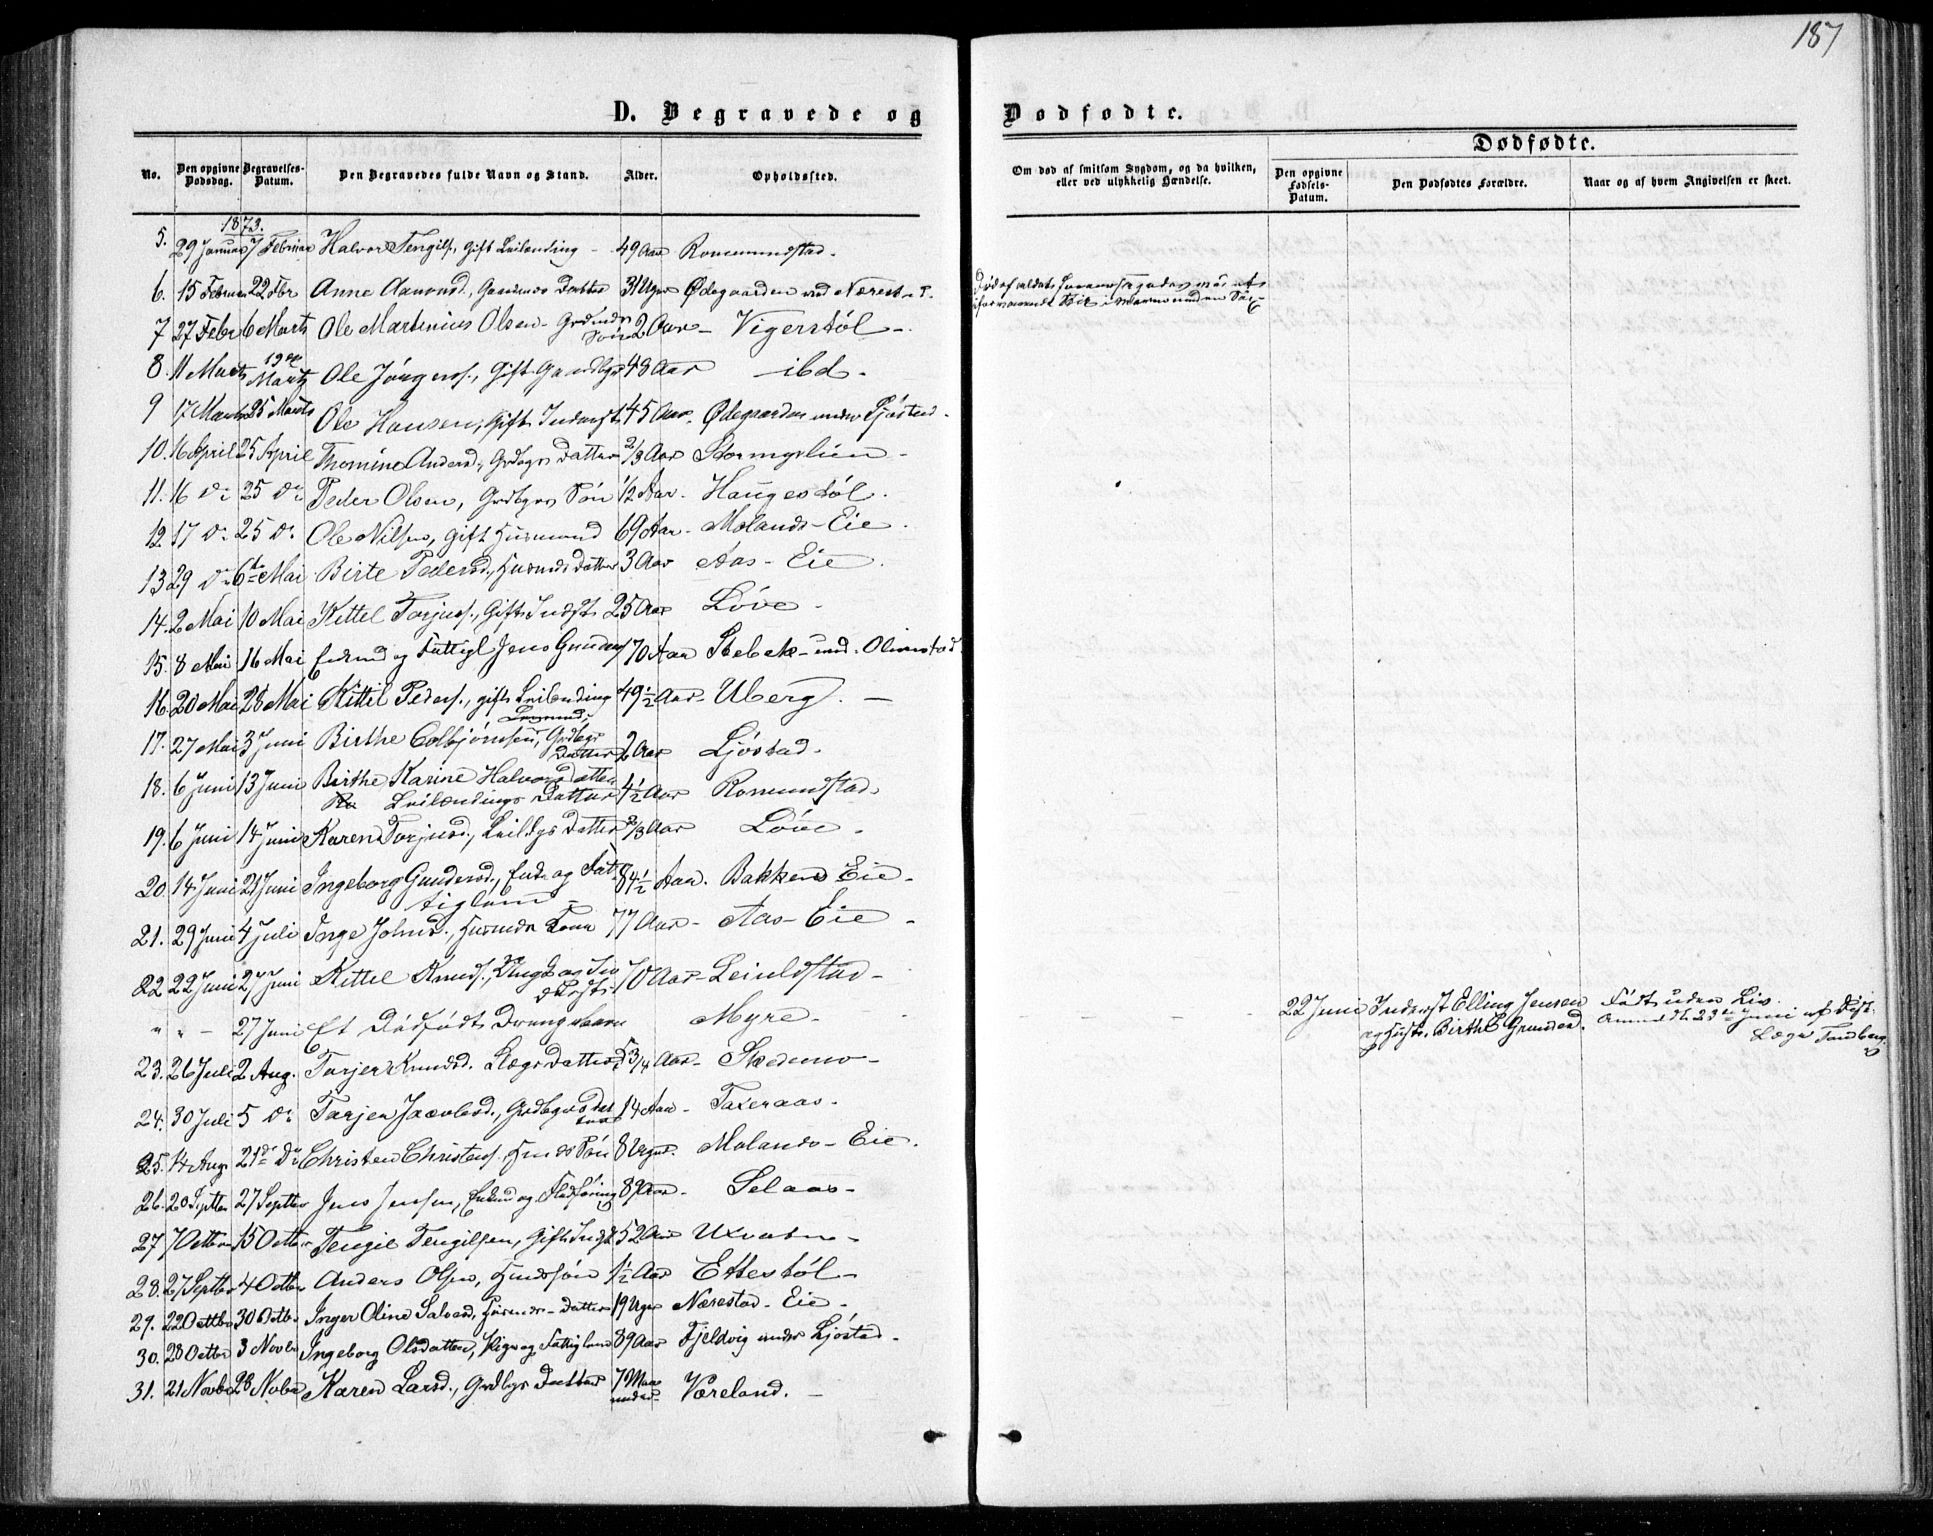 187
D. Begravede og Dødfødte.
No. Den opgivne Dødsdag. Begravelses-Datum. Den Begravedes fulde Navn og Stand. Alder. Opholdssted.
Om død af smitsom Sygdom, og da hvilken, eller ved ulykkelig Hændelse.
Dødfødte.
Den opgivne Fødsels-Datum. Den Dødfødtes Forældre. Naar og af hvem Angivelsen er skeet.
1873.
5. 29 Januar 7 Februar Halvor Tengils., Gift Leilending - 49 Aar Romundstad.
6. 15 Februar 22 Fbr Anne Aanonsd., Datter 31 Uger Ødegaarden und Nærest
7 27 Febr 6 Marts Ole Martinius Olsen - Søn 2 Aar - Vigerstøl -
8. 11 Marts 19de Marts Ole Jörgens., Gift Gaardbgr 43 Aar - ibd -
9 17 Marts 25 Marts Ole Hansen, Gift Inderst 45 Aar. Ødegaarden under Ljöstad -
10. 16 April 25 April Thomine Andersd., Grdbgrs Datter 2/3 Aar Stormyrlien -
11. 16 Do 25 Do Peder Olsen, Grdbgrs Søn 1/2 Aar. Haugestøl.
12. 17 Do 25 Do Ole Nilsen, gift Husmand 69 Aar - Molands-Eie.
13 29 Do 6te Mai Birte Pedersd., Husmds Datter 3 Aar Aas - Eie.
14. 2 Mai 10 Mai Kittel Torjus., Gift Indst 25 Aar Löve -
15. 8 Mai 16 Mai Enkmd og Fattigl Jens Gunders 70 Aar Stebek - und. Olimstad
16. 20 Mai 28 Mai Kittil Peders., gift Leilending 49 1/2 Aar Uberg. -
17. 27 Mai 3 Juni Birthe Colbjörnsen, Grdbgr Datter 2 Aar Ljöstad -
18. 6 Juni 13 Juni Birthe Karine Halvorsdatter
Leilændings Datter 4 1/2 Aar Romundstad.
19. 6 Juni 14 Juni Karen Torjusd., Leildgs Datter 2/3 Aar Löve -
20. 14 Juni 21 Juni Ingeborg Gundersd., Enke og Fat-
tiglem - 84 1/2 Aar. Bakkens Eie -
21. 29 Juni 4 Juli Inge Johnsd., Husmds Kone 77 Aar - Aas-Eie -
22 22 Juni 27 Juni Kittel Knuds., Ungk og In
70 Aar - Leiulstad -
" " - 27 Juni Et Dödfödt Drengebarn Myre -
22 Juni Inderst Elling Jensen og Hust. Birthe Gundersd. Födt uden Liv. Anmdt 23de Juni af Dist. Læge Tandberg.
23. 26 Juli 2 Aug. Torjer Knudsd. Lægdsdatter 3/4 Aar - Skedsmo -
24. 30 Juli 5 Do Torjer Jacobsd., Grdbgrsdatter 14 Aar - Takeraas -
25. 14 Aug 21de Do Christen Christens., Hmds Søn 8 Uger. Molands - Eie.
26. 20 Septbr 27 Septbr Jens Jensen, Enkmd og Fladföring 89 Aar - Selaas -
27 7 Octbr 15 Octbr Tengil Tengilsen, Gift Indst 52 Aar Uxvatn -
28. 27 Septbr 4 Octbr Anders Olsen, Hmdssön 1 1/2 Aar Ettestöl -
29. 22 Octbr 30 Octbr. Inger Oline Salvesd., Husmds - Datter 19 Uger Nærestad - Eie -
30. 28 Octbr 3 Novbr Ingeborg Olsdatter, Pige og Fattiglem 89 Aar Fjeldvig under Ljöstad -
31. 21 Novbr 28 Novbr Karen Larsd., Grdbgs Datter 7 Maaneder - Væreland. -